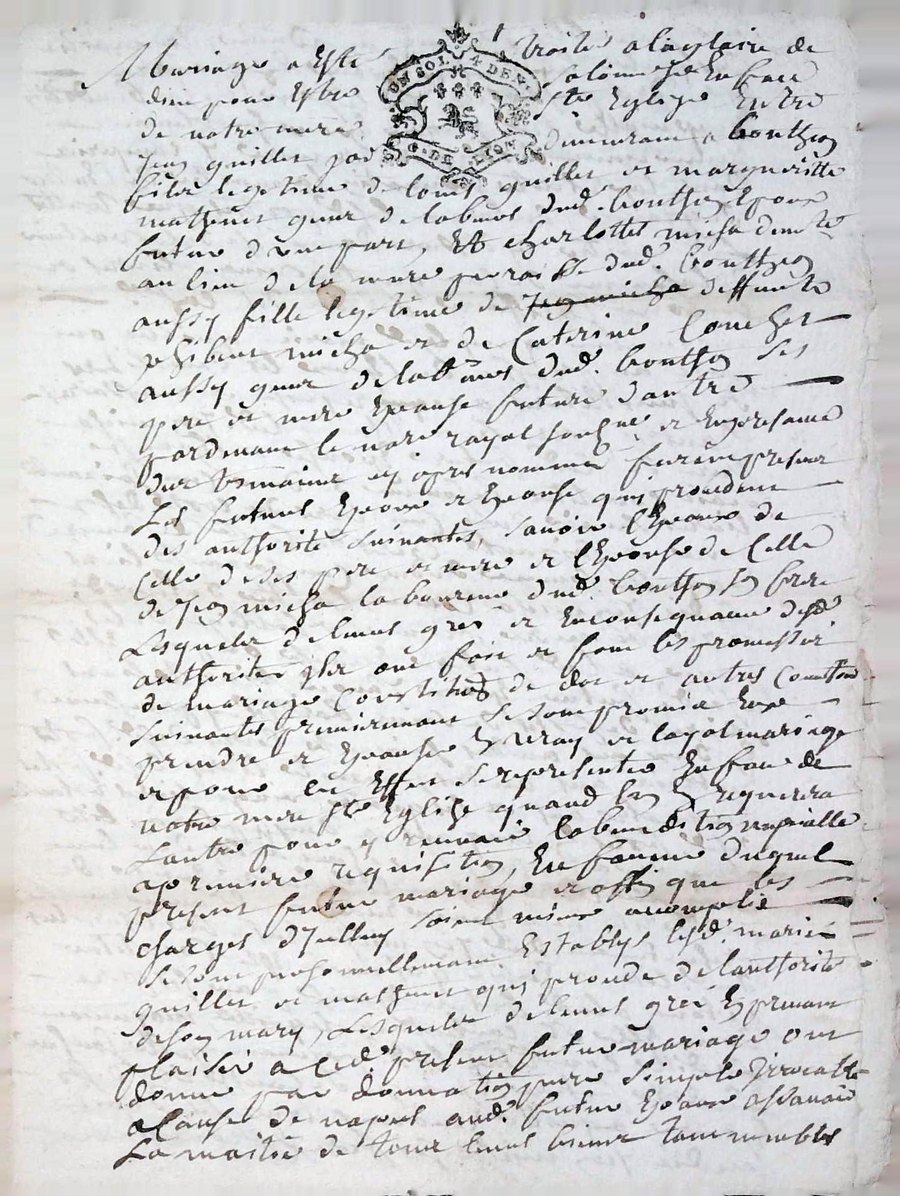 Mariage a Esté traité a la gloire de
dieu pour Estre solennisé En face
de notre mere ste Eglize Entre
UN SOL 4 DEN.
G. DE LION
Jean quillet demeurant a bouthon
filz legitime de louis quillet et margueritte
mathevet dud. bouthon Epoux
futur d'une part, Et charlotte micha
au lieu de la mure parroisse dud. bouthon
aussy fille legitime de Jean micha deffunt
micha et de Caterine Couchet
aussy dud. bouthon ses
pere et mere Epouse future d'autre
pardevant le nore royal soubsigné et En presance
des tesmoins cy apres nommés furent presens
Les futurs Epoux et Epouse qui procedent
des authorité suivantes, savoir l'Epoux de
Celle de ses pere et mere et l'Epouse de Celle
de Jean micha laboureur dud. bouthon son frere
Lesquelz de leurs gré et En consequance desd.
authorités ont fait et font les promesses
de mariage Constitution de dot et autres
suivantes premierement se sont promis
prendre et Epouser En vray et loyal mariage
et pour cet Effect se representer En face de
notre mere ste Eglize quand l'un En requerra
L'autre pour y recevoir la benediction nuptialle
a premiere requisition, En faveur duquel
present futur mariage et affin que les
charges d'Icelluy soient mieux acomplie
se sont personnellement Establys lesd. mariés
quillet et mathevet qui procede de l'authorité
de son mary, Lesquelz de leurs gré Et prenant
plaisir a ced. present futur mariage ont
donné par donnation pure simple Irrevocable
a Cause de nopces aud. futur Epoux assavoir
La moitié de tous leurs biens tant meubles